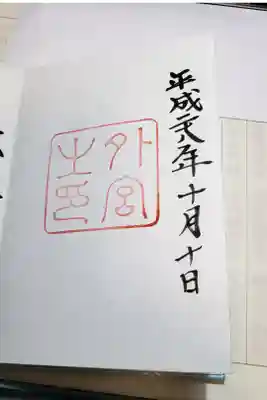 平成二八年十月十日
外宮
之印